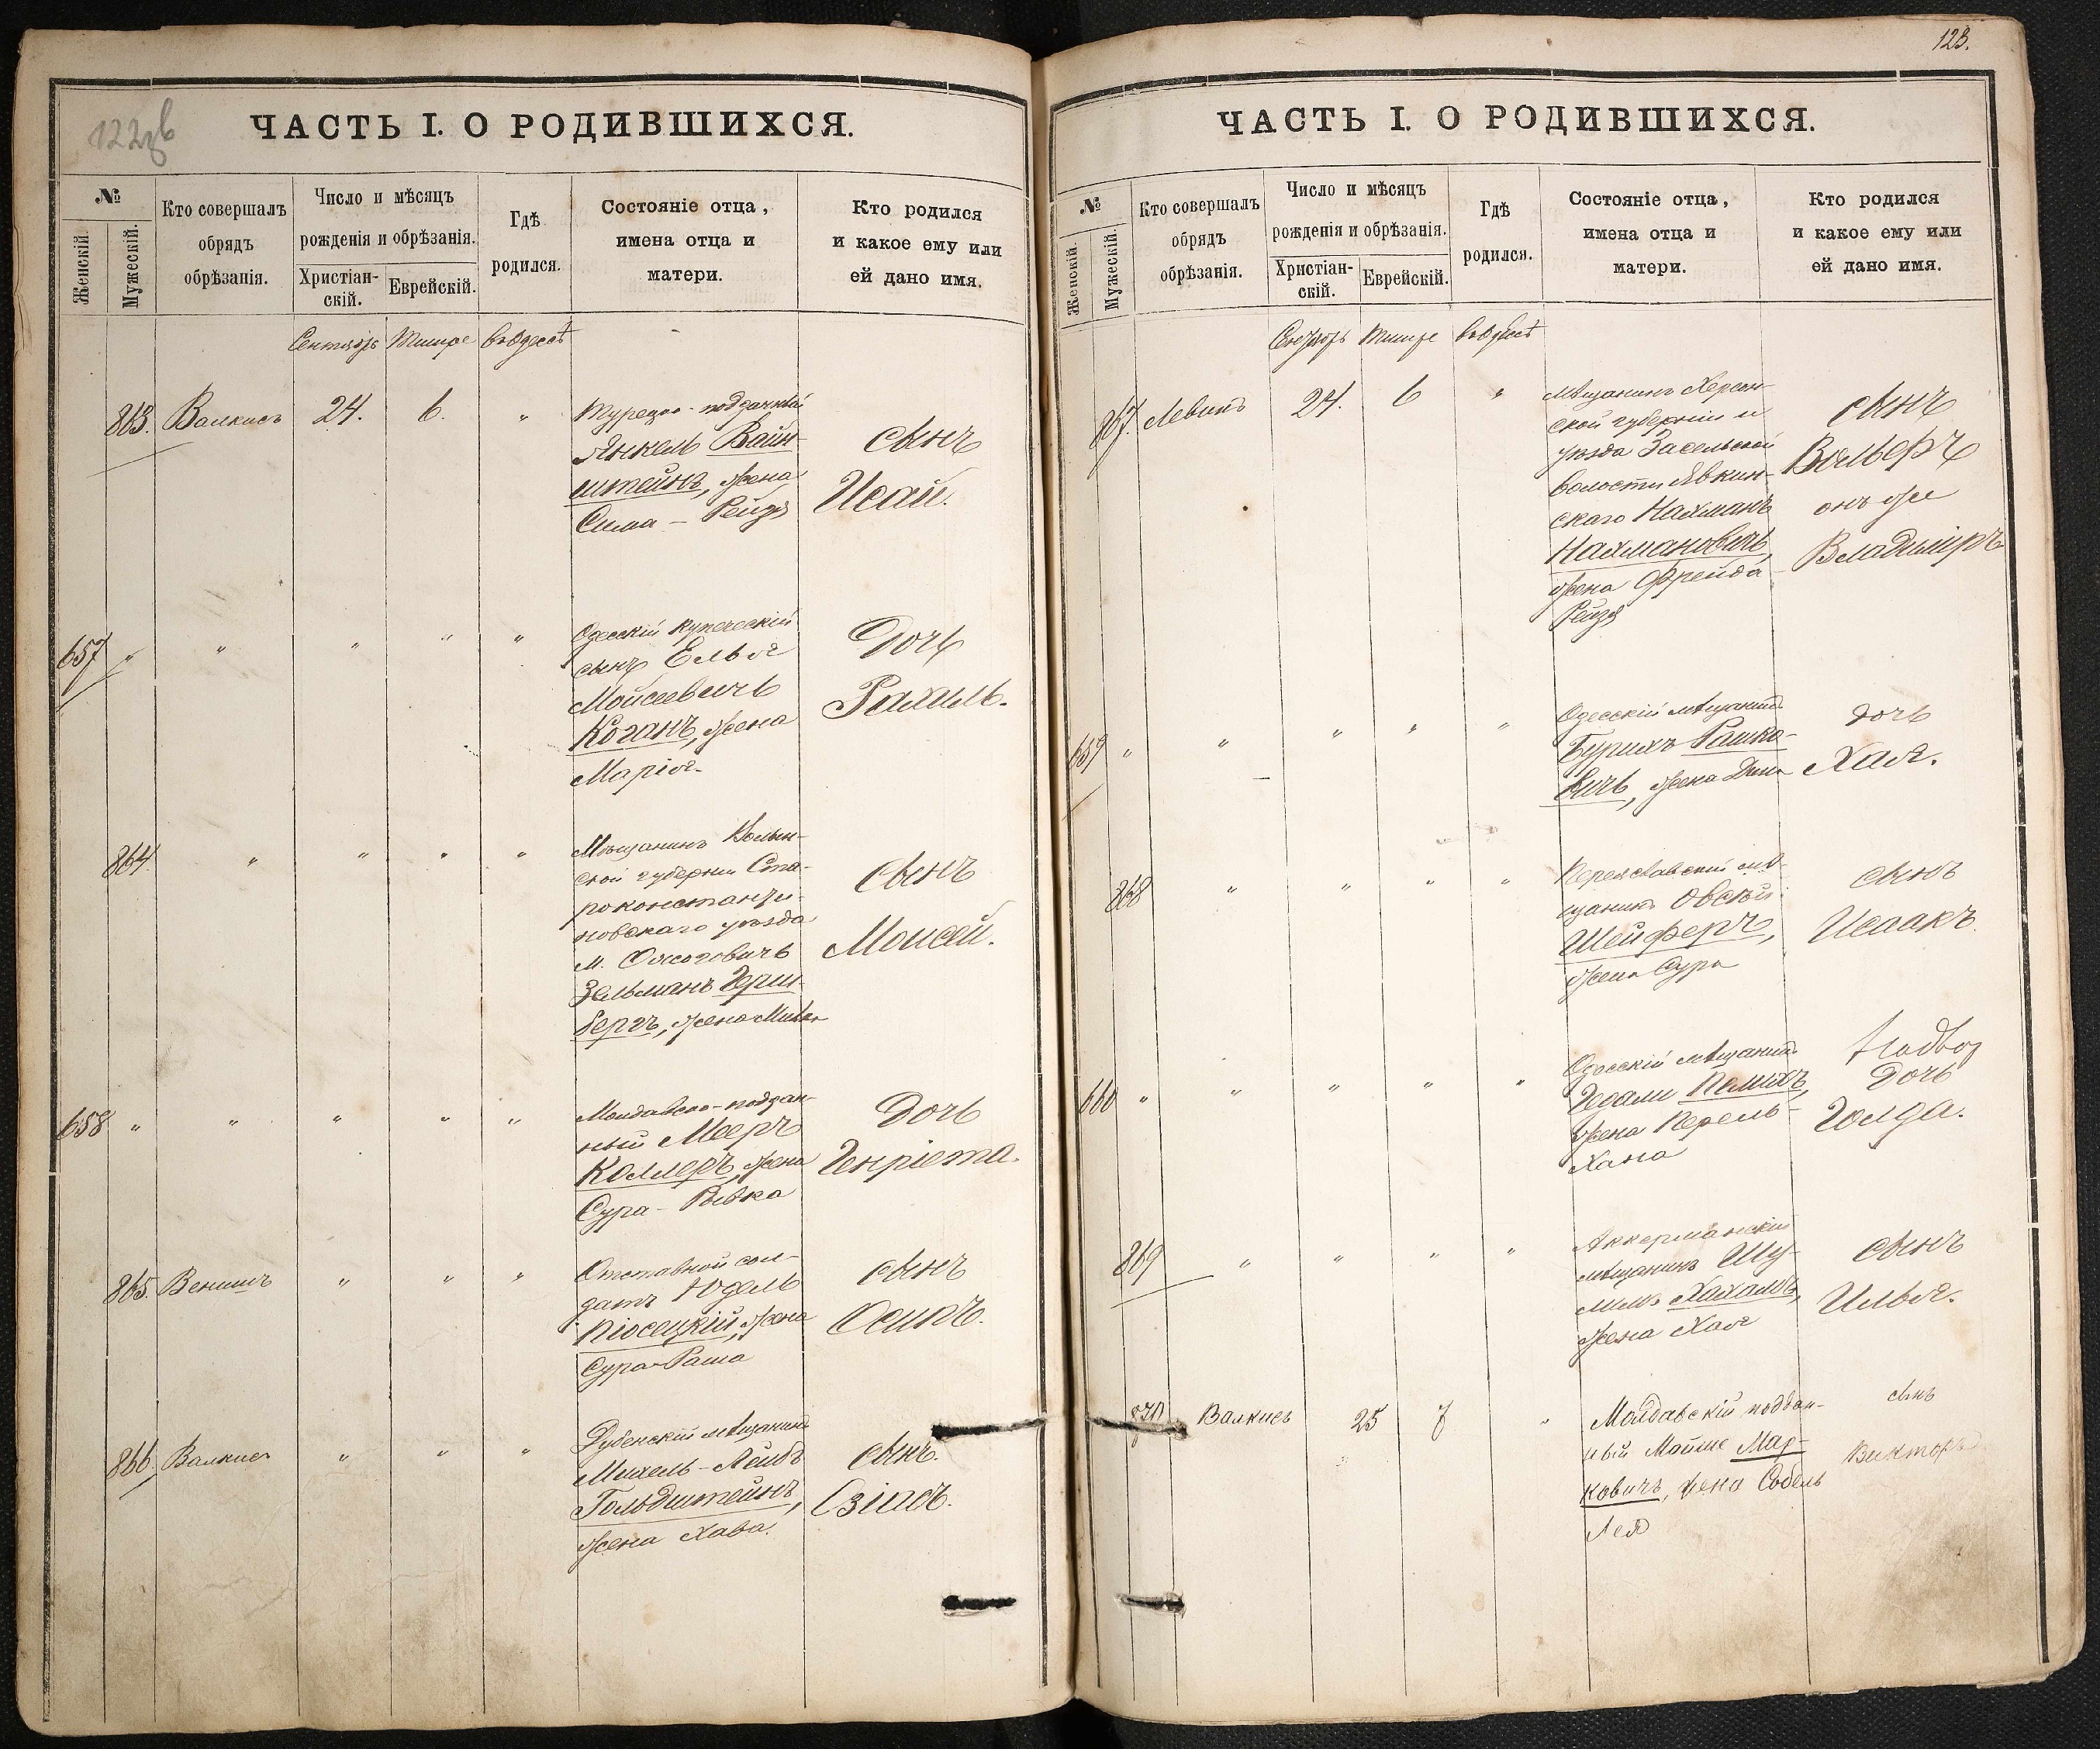 122об
ЧАСТЬ I. О РОДИВШИХСЯ.
№
Женскій.
Мужескій.
Кто совершалъ
обрядъ
обрѣзанія.
Число и мѣсяцъ
рожденія и обрѣзанія.
Христіан-
скій.
Еврейскій.
Гдѣ
родился.
Состояніе отца,
имена отца и
матери.
Кто родился
и какое ему или
ей дано имя.
Сентябрь Тишре въ Одессѣ
863. Валкисъ 24. 6. "
Турецко-подданный
Янкель Вайн-
штейнъ, жена
Сима - Рейзя
сынъ
Исай.
657 " " " " "
Одесскій купеческій
сынъ Елья
Мойсеевичъ
Коганъ, жена
Марія.
Дочь
Рахиль.
864. " " " "
Мѣщанинъ Волын-
ской губерніи Ста-
роконстанти-
новскаго уѣзда
м.
Зельманъ Грин-
бергъ, жена
сынъ
Моисей.
658 " " " " "
Молдавско-поддан-
ный Мееръ
Коллеръ, жена
Сура - Ривка
Дочь
Генріета.
865. Бенишъ " " "
Отставной сол-
датъ Юдель
Піосецкій, жена
Сура-Раша
сынъ
Осипъ.
866 Валкисъ " " "
Дубенскій мѣщанинъ
Михель-Лейбъ
Гольдштейнъ,
жена Хава.
сынъ.
128.
ЧАСТЬ I. О РОДИВШИХСЯ.
№
Женскій.
Мужескій.
Кто совершалъ
обрядъ
обрѣзанія.
Число и мѣсяцъ
рожденія и обрѣзанія.
Христіан-
скій.
Еврейскій.
Гдѣ
родился.
Состояніе отца,
имена отца и
матери.
Кто родился
и какое ему или
ей дано имя.
Сентябрь Тишре въ Одессѣ
867. Левинъ 24. 6 "
Мѣщанинъ Херсон-
ской губерніи и
уѣзда Засельской
волости Явкин-
скаго Нахманъ
Нахмановичъ,
жена Фрейда-
Рейзя
сынъ
Вольфъ
онъ же
Владиміръ
659 " " " " "
Одесскій мѣщанинъ
Бурихъ Рашко-
вичъ, жена Дина
дочь
Хая.
868 " " " "
Переяславскій мѣ-
щанинъ Овсѣй
Шейферъ,
жена Сура
сынъ
Исаакъ.
660 " " " " "
Одесскій мѣщанинъ
Гедали
жена Перель-
Хана
Дочь
Голда.
869 " " " "
Аккерманскій
мѣщанинъ Шу-
лимъ Хахамъ,
жена Хая
сынъ
Илья.
870 Валкисъ 25 7 "
Молдавскій поддан-
ный Мойше Мар-
ковичъ, жена Собель
Лея
сынъ
Викторъ